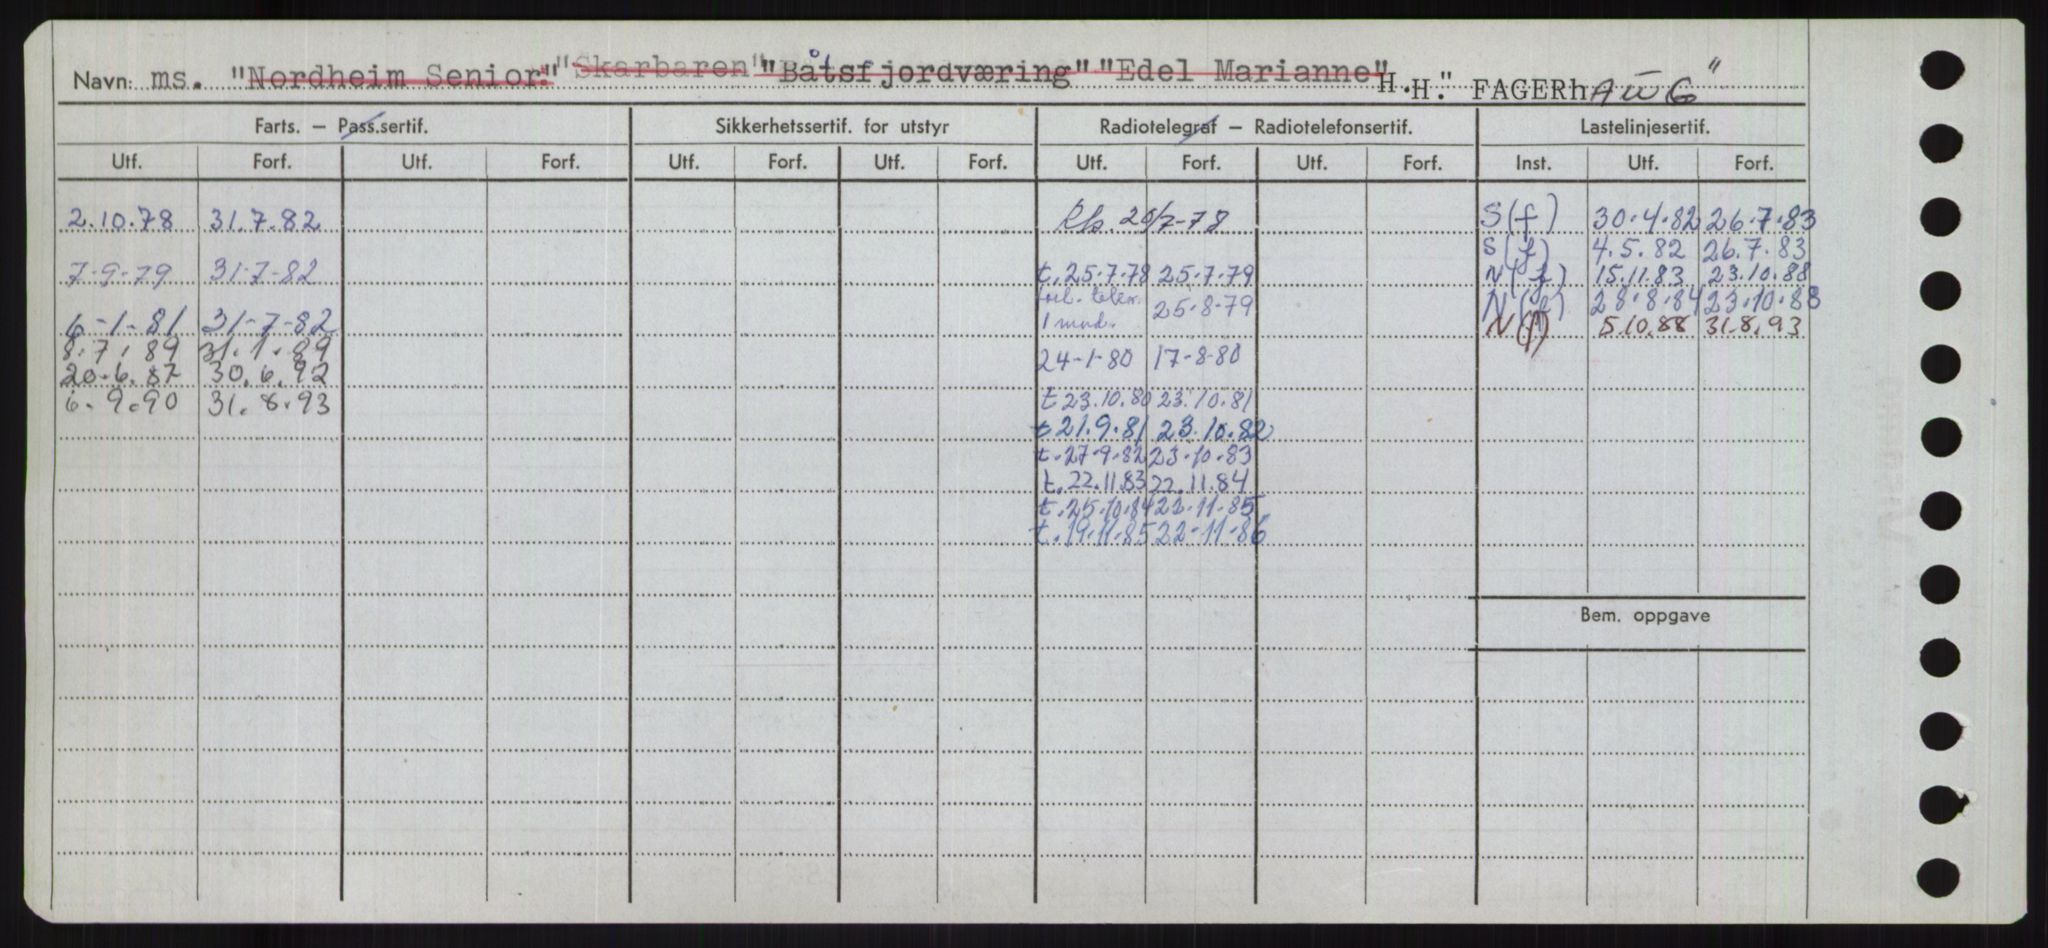 Navn: ms. "Nordheim Senior" "Skarbaren" "Båtsfjordværing" "Edel Marianne" H.H." FAGERhAUG"
Farts. — Pass.sertif. Sikkerhetssertif. for utstyr Radiotelegraf — Radiotelefonsertif. Lastelinjesertif.
Utf. Forf. Utf. Forf. Utf. Forf. Utf. Forf. Utf. Forf. Utf. Forf. Inst. Utf. Forf.
2.10.78 31.7.82 20/7-78 S(f) 30.4.82 26.7.83
S(f) 4.5.82 26.7.83
7-9-79 31-7-82 t.25.7.78 25.7.79 N(f) 15.11.83 23.10.88
25.8.79 N(f) 28.8.84 23.10.88
1 mnd.
6-1-81 31-7-82 N(f) 5.10.88 31.8.93
8.7.89 31.1.89 24-1-80 17-8-80
20.6.87 30.6.92
6.9.90 31.8.93 t 23.10.80 23.10.81
t 21.9.81 23.10.82
t.27.9.82 23.10.83
t.22.11.83 22.11.84
t.25.10.84 22.11.85
t.19.11.85 22-11-86
Bem. oppgave